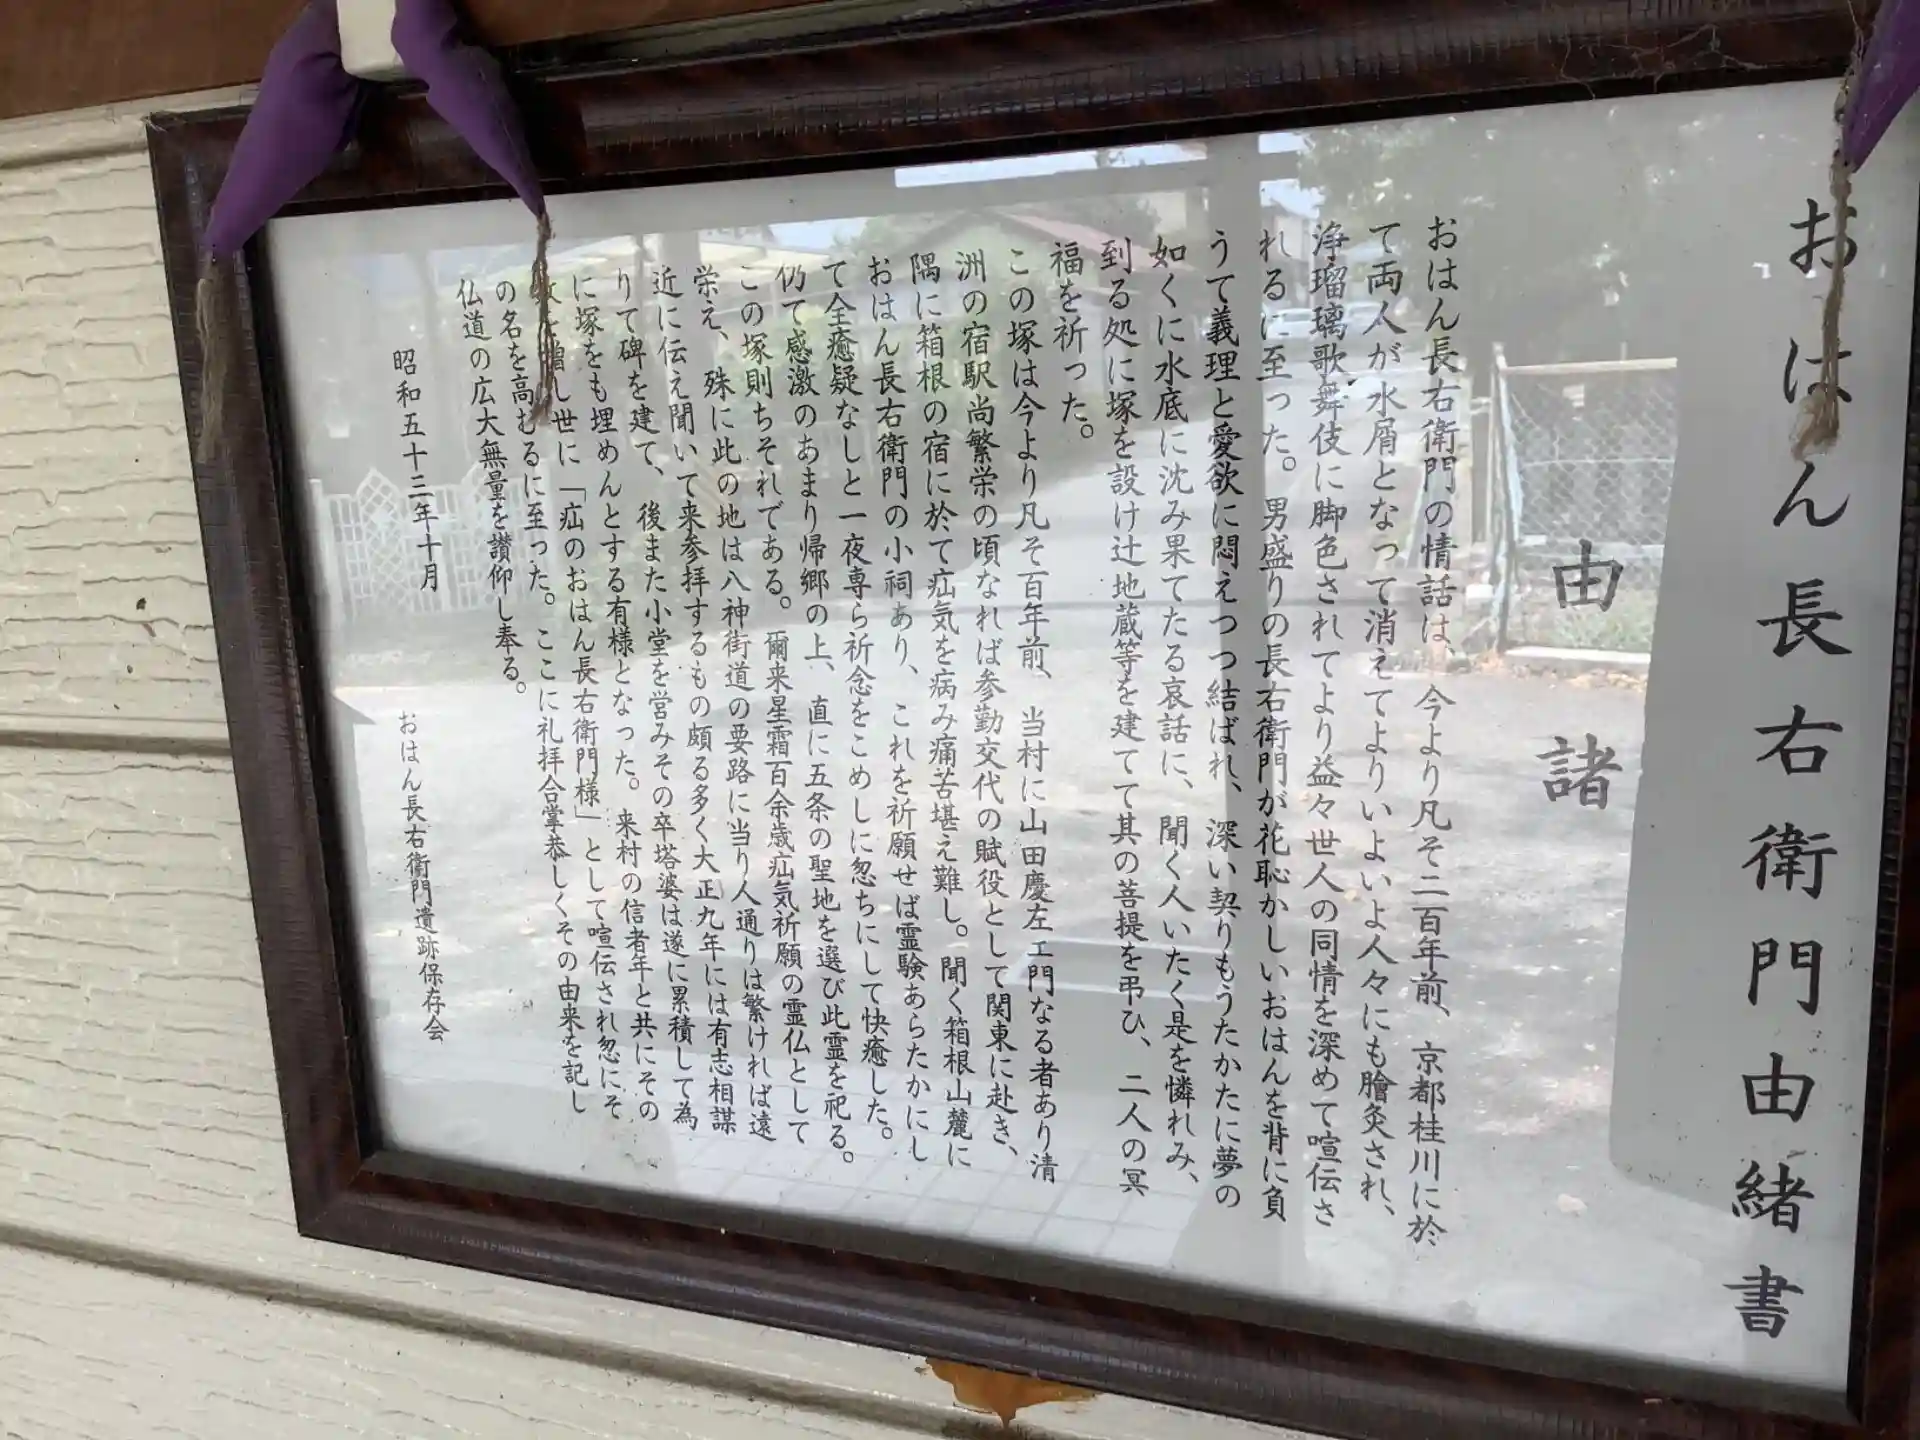 おはん長右衛門由緒書
由諸
おはん長右衛門の情話は、今より凡そ二百年前、京都桂川に於
て両人が水屑となって消えてよりいよいよ人々にも膾灸され、
浄瑠璃歌舞伎に脚色されてより益々世人の同情を深めて喧伝さ
れるに至った。男盛りの長右衛門が花恥かしいおはんを背に負
うて義理と愛欲に悶えつつ結ばれ、深い契りもうたかたに夢の
如くに水底に沈み果てたる哀話に、聞く人いたく是を憐れみ、
到る処に塚を設け辻地蔵等を建てて其の菩提を弔ひ、二人の冥
福を祈った。
この塚は今より凡そ百年前、当村に山田慶左エ門なる者あり清
洲の宿駅尚繁栄の頃なれば参勤交代の賦役として関東に赴き、
隅に箱根の宿に於て疝気を病み痛苦堪え難し。聞く箱根山麓に
おはん長右衛門の小祠あり、これを祈願せば霊験あらたかにし
て全癒疑なしと一夜専ら祈念をこめしに忽ちにして快癒した。
仍て感激のあまり帰郷の上、直に五条の聖地を選び此霊を祀る。
この塚則ちそれである。爾来星霜百余歳疝気祈願の霊仏として
栄え、殊に此の地は八神街道の要路に当り人通りは繁ければ遠
近に伝え聞いて来参拝するもの頗る多く大正九年には有志相謀
りて碑を建て、後また小堂を営みその卒塔婆は遂に累積して為
に塚をも埋めんとする有様となった。来村の信者年と共にその
を増し世に「疝のおはん長右衛門様」として喧伝され忽にそ
の名を高むるに至った。ここに礼拝合掌恭しくその由来を記し
仏道の広大無量を讃仰し奉る。
昭和五十三年十月
おはん長右衛門遺跡保存会